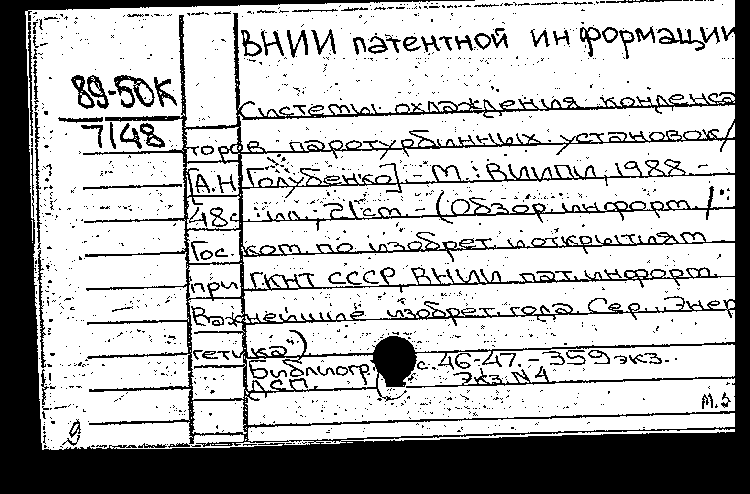 ВНИИ патентной информации
89-50К
7148
Системы охлаждения конденса
торов паротурбинных установок/
[А.Н. Голубенко]. - М.: ВНИИПИ, 1988. -
48с.: ил.; 21см. - (Обзор. информ. /
Гос. ком. по изобрет. и открытиям
при ГКНТ СССР, ВНИИ пат. информ.
Важнейшие изобрет. года. Сер. "Энер
гетика")
Библиогр.: с. 46-47. - 359 экз.
ДСП. Экз. N 4
9